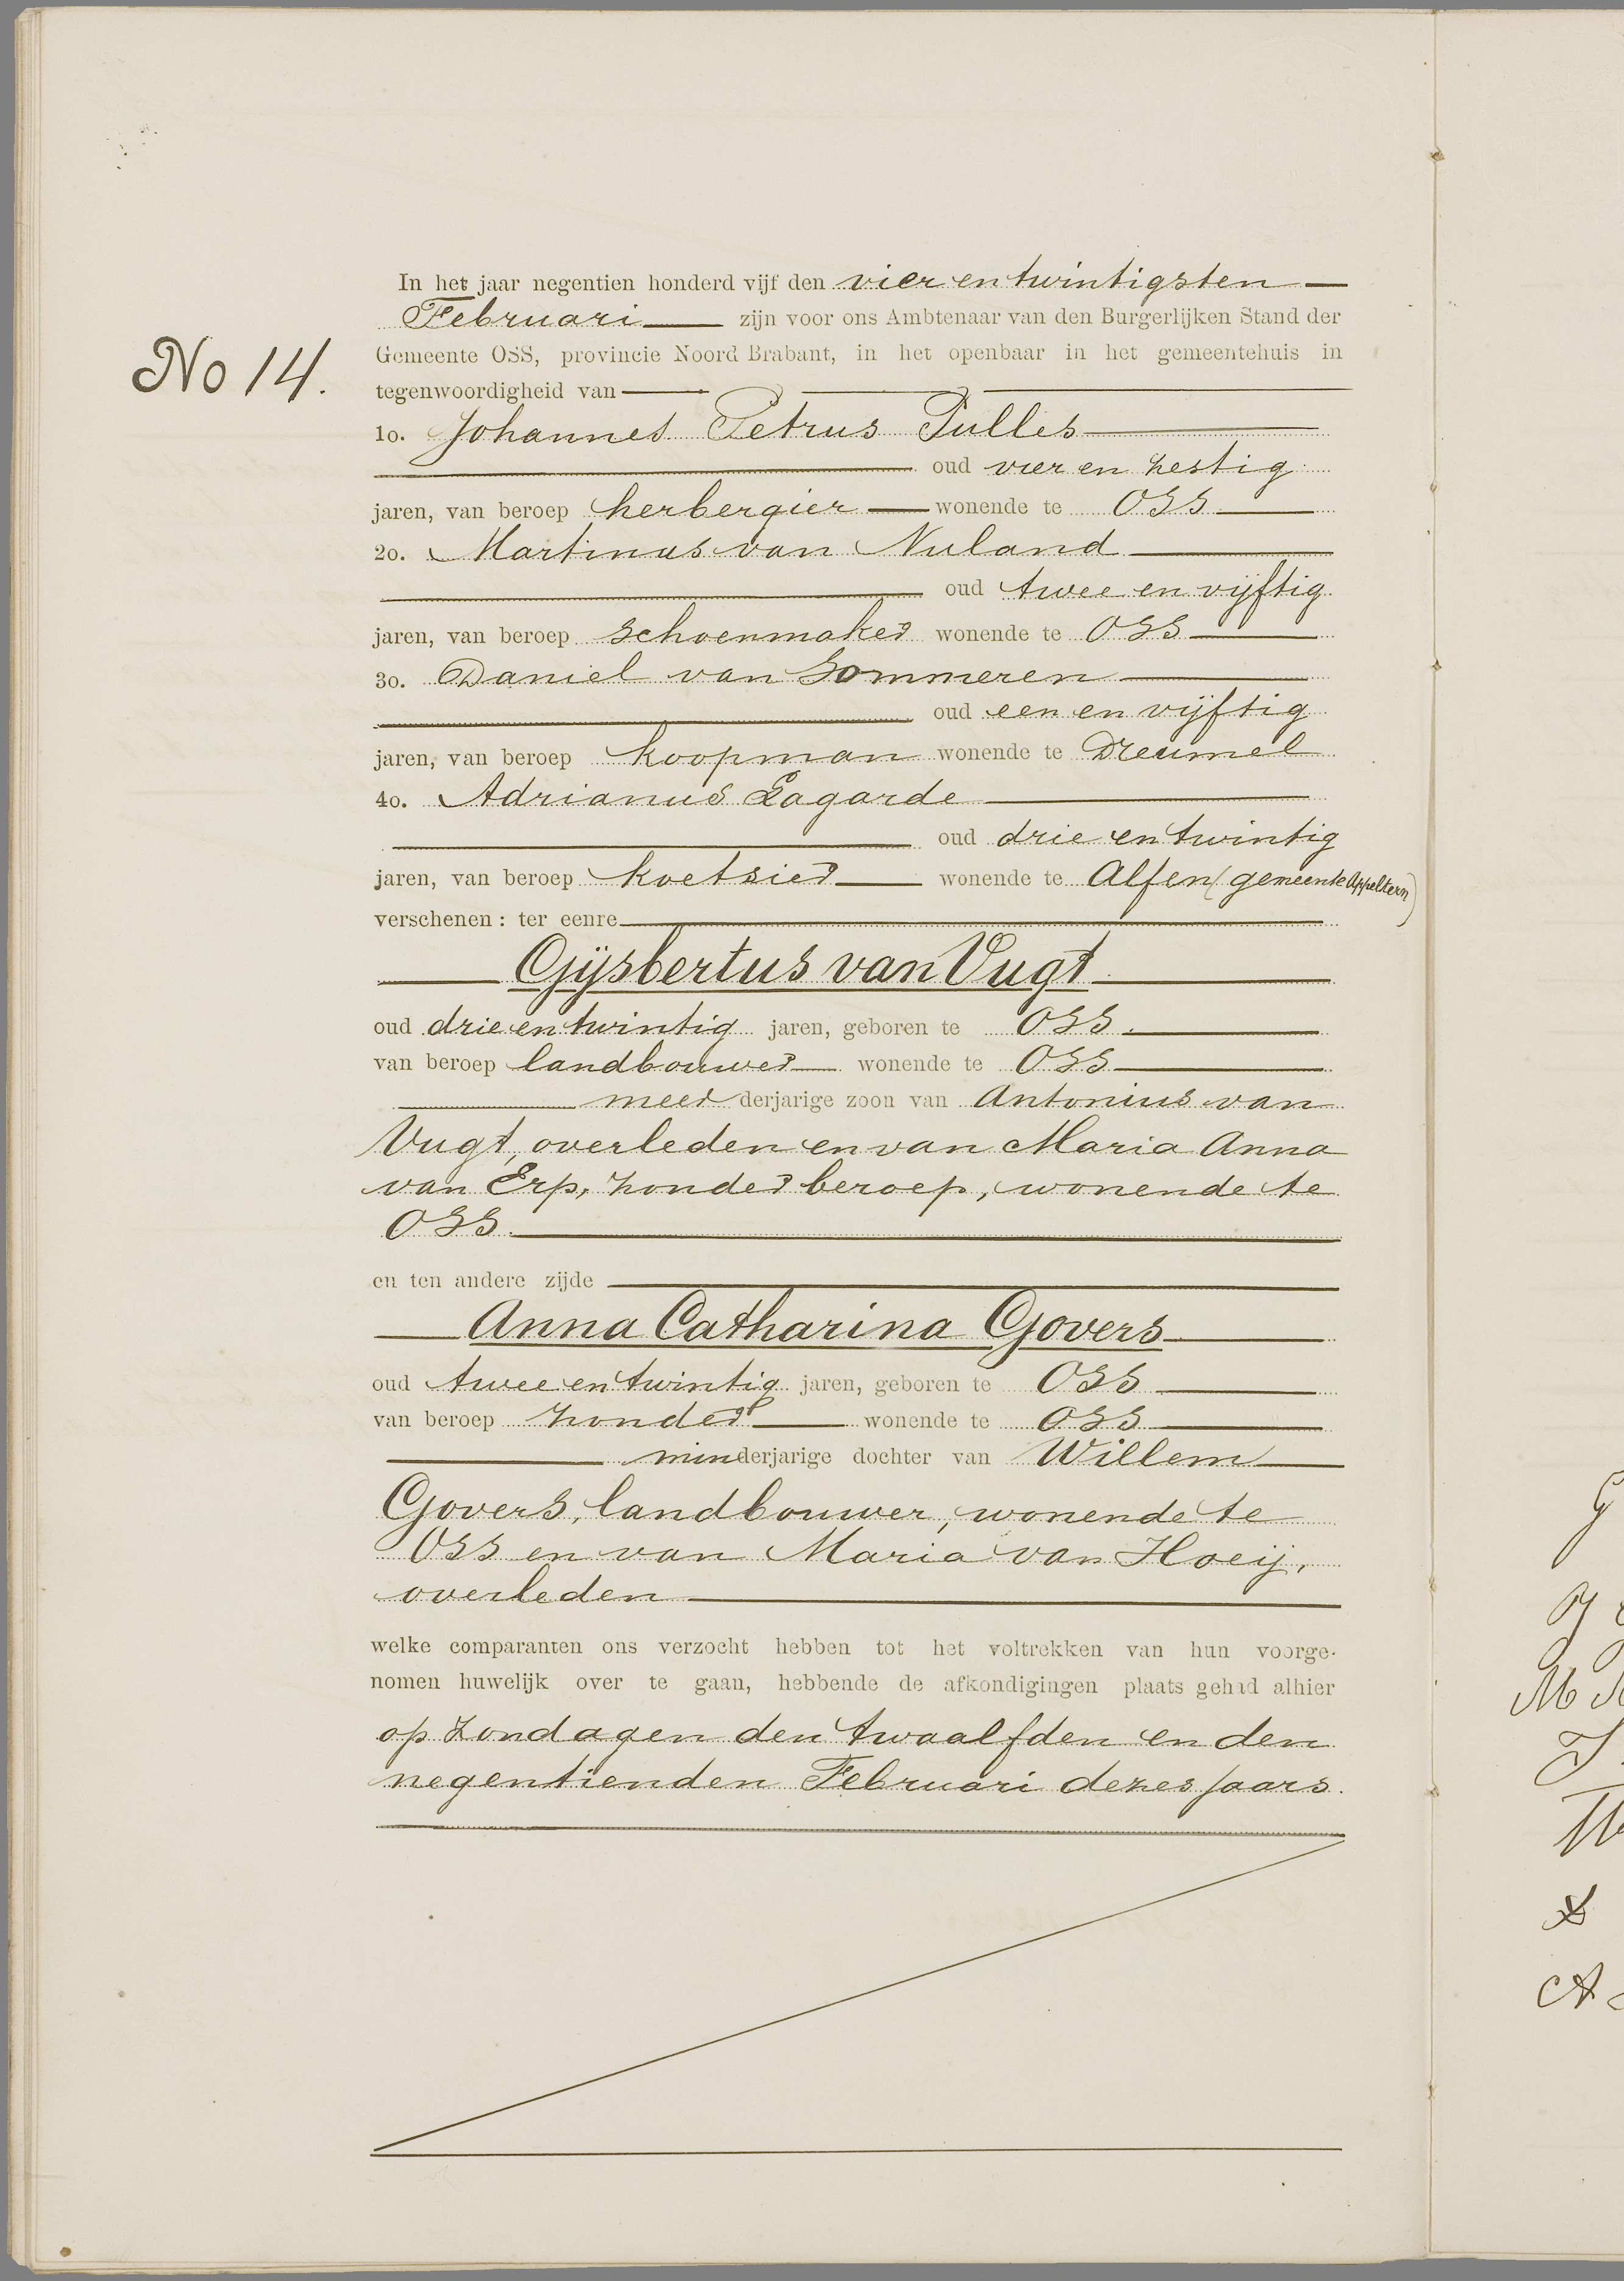 No 14.
In het jaar negentien honderd vijf den vier en twintigsten
Februari zijn voor ons Ambtenaar van den Burgerlijken Stand der
Gemeente OSS, provincie Noord Brabant, in het openbaar in het gemeentehuis in
tegenwoordigheid van
1o. Johannes Petrus Pulles
oud vier en zestig
jaren, van beroep herbergier wonende te OSS
2o. Martinus van Nuland
oud twee en vijftig
jaren, van beroep schoenmaker wonende te OSS
3o. Daniel van Sommeren
oud een en vijftig
jaren, van beroep koopman wonende te Dreumel
4o. Adrianus Lagarde
oud drie en twintig
jaren, van beroep koetsier wonende te Alfen (gemeente Appeltern)
verschenen: ter eenre
Gijsbertus van Vugt
oud drie en twintig jaren, geboren te OSS.
van beroep landbouwer wonende te OSS
meerderjarige zoon van Antonius van
Vugt, overleden en van Maria Anna
van Erp, zonder beroep, wonende te
OSS.
en ten andere zijde
Anna Catharina Govers
oud twee en twintig jaren, geboren te OSS
van beroep zonder wonende te OSS
minderjarige dochter van Willem
Govers, landbouwer, wonende te
OSS en van Maria van Hoeij,
overleden
welke comparanten ons verzocht hebben tot het voltrekken van hun voorge-
nomen huwelijk over te gaan, hebbende de afkondigingen plaats gehad alhier
op zondagen den twaalfden en den
negentienden Februari dezes jaars.